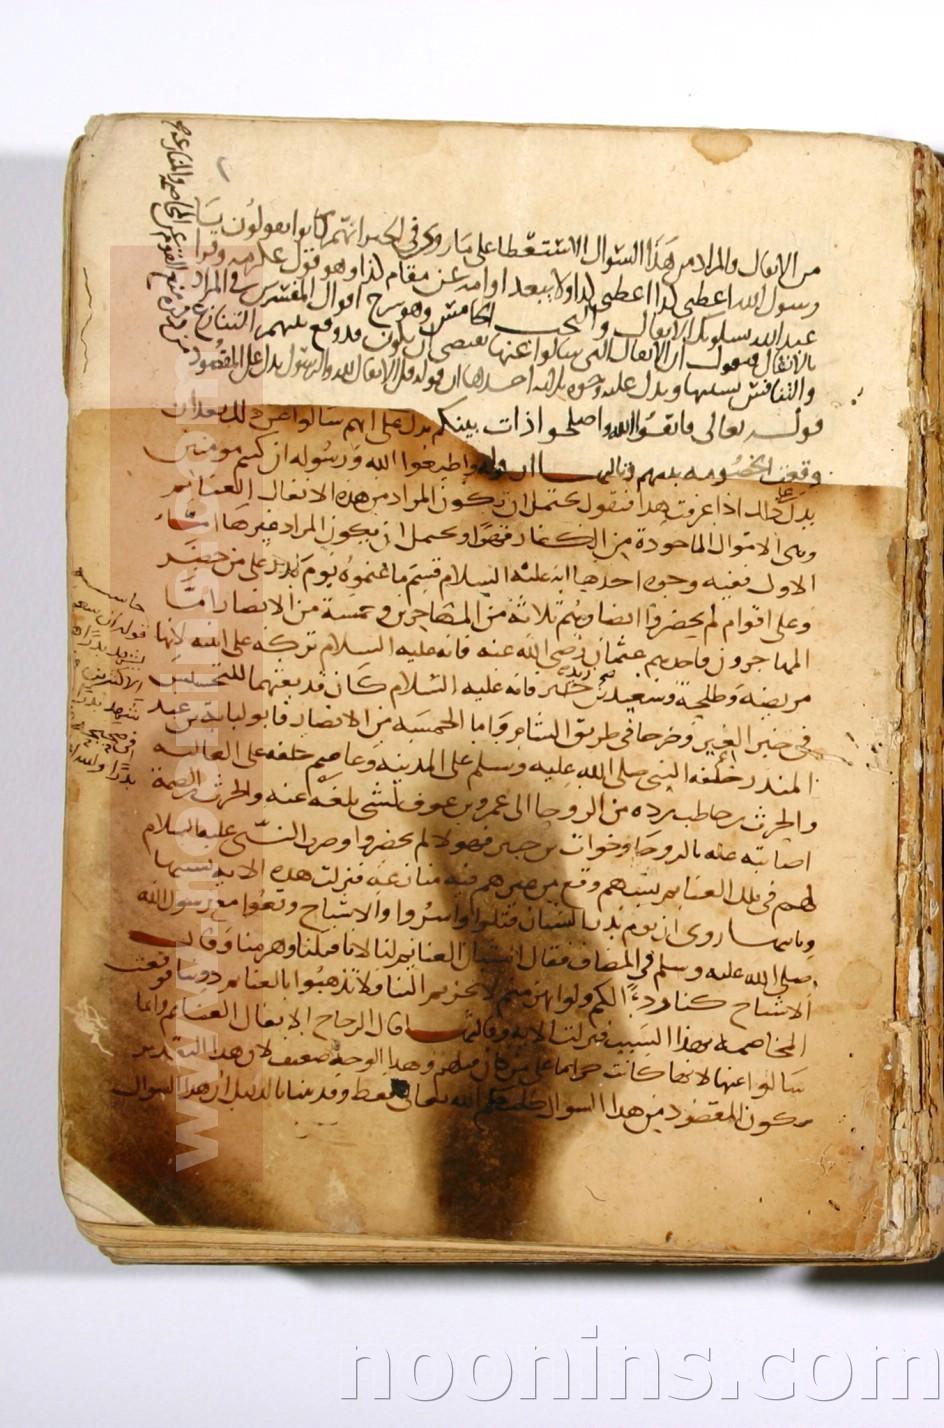 من الانفال والمراد من هذا السوال الاستعطا على ما روي في الخبر انهم كانوا يقولون يا
رسول الله اعطني كذا اعطني كذا ولا يبعد اقامة عن مقام من وهو قول عكرمه وقرا
عبد الله يسلونك الانفال والبحث الخامس وهو شرح اقوال المفسرين في المراد
بالانفال فنقول ان الانفال التي سالوا عنها يقتضي ان يكون قد وقع بينهم التنازع
والتنافس بسببها ويدل عليه وجوه ثلاثة احدها ان قوله قل الانفال لله والرسول يدل على المقصود
من ذكره منع القوم عن المخاصمه والمنازعه
قوله تعالى فاتقوا الله واصلحوا ذات بينكم يدل على انهم سالوا عن ذلك بعد ان
وقعت الخصومه بينهم وثالثها ان قوله واطيعوا الله ورسوله ان كنتم مومنين
يدل على ذلك اذا عرفت هذا فنقول يحتمل ان تكون المراد من هذه الانفال الغنايم
وهي الاموال الماخوذة من الكفار قهرا ويحتمل ان يكون المراد غيرها اما
الاول ففيه وجوه احدها انه عليه السلام قسم ما غنموه يوم بدر على من حضر
وعلى اقوام لم يحضروا ايضا وهم ثلاثة من المهاجرين وخمسة من الانصار اما
المهاجرون فاحدهم عثمان رضي الله عنه فانه عليه السلام تركه على ابنته لانها
مريضه وطلحة وسعيد بن زيد فانه عليه السلام كان قد بعثهما للتجسس
في خبر العير وخرجا في طريق الشام واما الخمسه من الانصار فابو لبابة بن عبد
المنذر خلفه النبي صلى الله عليه وسلم على المدينه وعاصم خلفه على العاليه
والحرث بن حاطب رده من الروحا الى عمرو بن عوف لشي بلغه عنه والحرث بن الصمة
اصابته علة بالروحا وخوات بن جبير فهولا لم يحضروا وضرب النبي عليه السلام
لهم في تلك الغنايم بسهم فوقع من غيرهم فيه منازعه فنزلت هذه الايه بسببها
وثانيها روي ان يوم بدر الشبان قتلوا واسروا والاشياخ وقفوا مع رسول الله
صلى الله عليه وسلم في المصاف فقال الشبان الغنايم لنا لانا قتلنا وهزمنا وقال
الاشياخ كنا ردءا لكم ولو انهزمتم لانحزتم الينا ولا تذهبوا بالغنايم دوننا فوقعت
المخاصمه بهذا السبب فنزلت الايه وثالثها قال الزجاج الانفال الغنايم وانما
سالوا عنها لانها كانت حراما على من كان قبلهم وهذا الوجه ضعيف لان هذا التقدير
يكون المقصود من هذا السوال طلب حكم الله تعالى فقط وقد بينا بالدليل ان هذا السوال
حاشيه
www.noonins.com
noonins.com